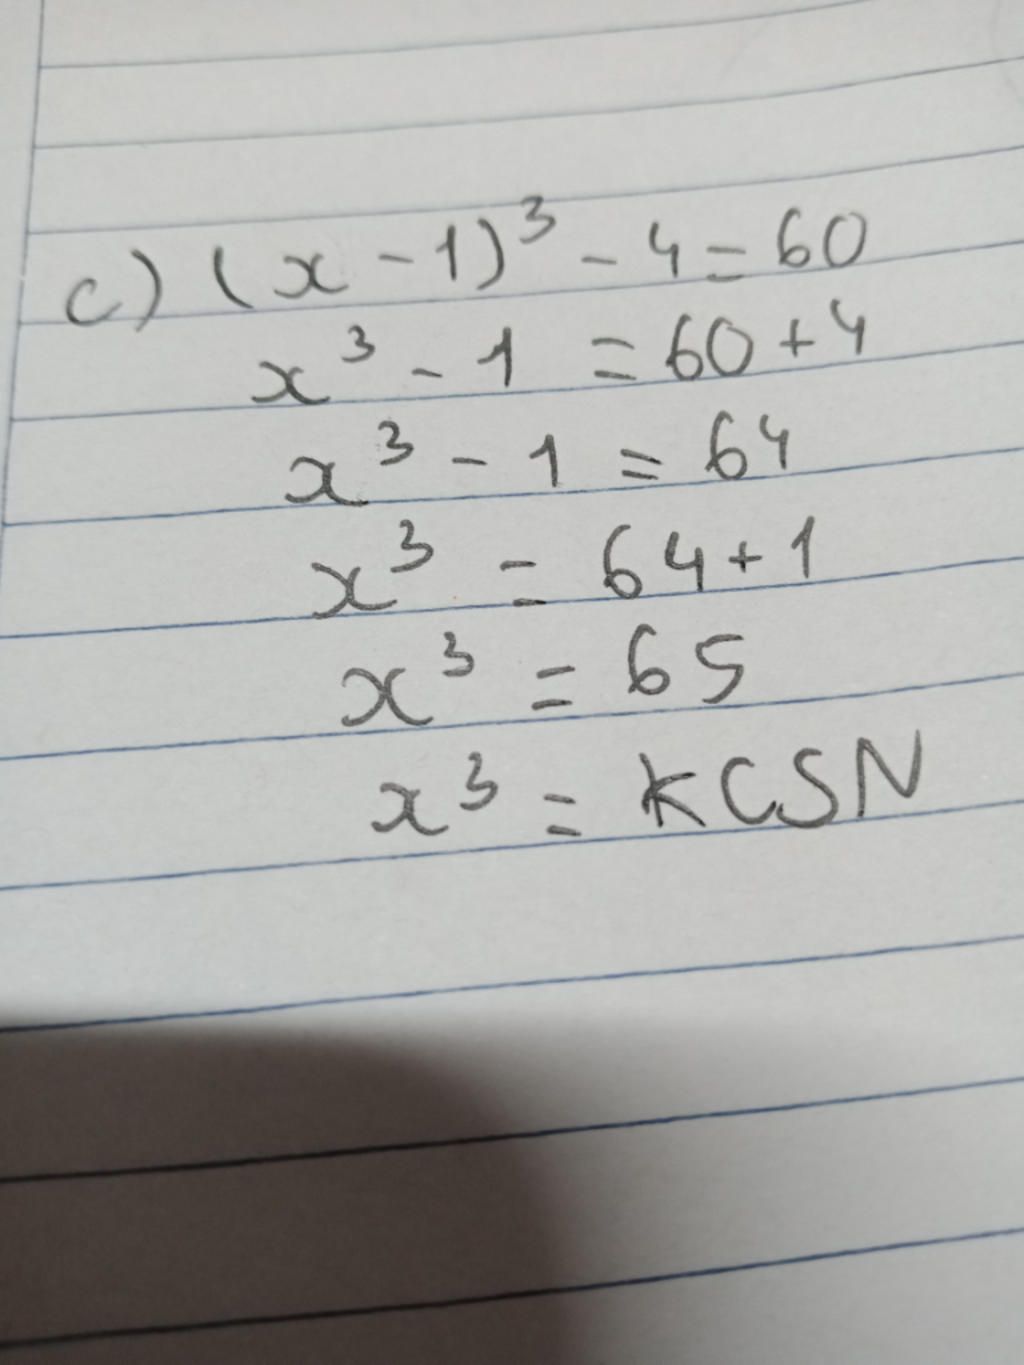 c) (x - 1)³ - 4 = 60
x³ - 1 = 60 + 4
x³ - 1 = 64
x³ = 64 + 1
x³ = 65
x³ = KCSN